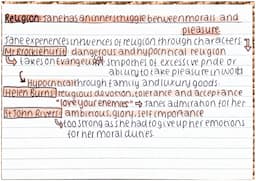 Religion - Jane has an inner struggle between morals and
pleasure
Jane experiences influences of religion through characters
Mr Brocklehurst dangerous and hypocritical religion
takes on Evangelical of excessive pride or
ability to take pleasure in
Hypocritical through family and luxury goods
Helen Burns religious devotion, tolerance and acceptance
"love your enemies" → Janes admiration for her
St John Rivers ambitious, glory, self importance
too strong as she had to give up her emotions
for her moral duties.